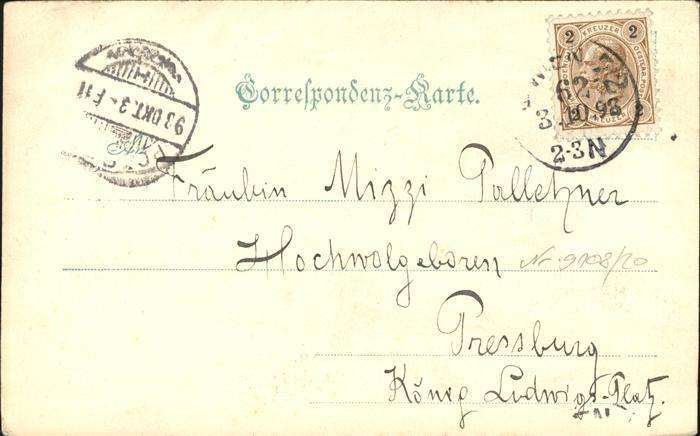 Correspondenz-Karte.
2 KREUZER 2
WIEN
3. 10 93
2-3N
93 OKT. 3
Fräulein Mizzi Palletzner
Hochwolgeboren
Nr 9108/20
Pressburg
König Ludwigs-Platz.